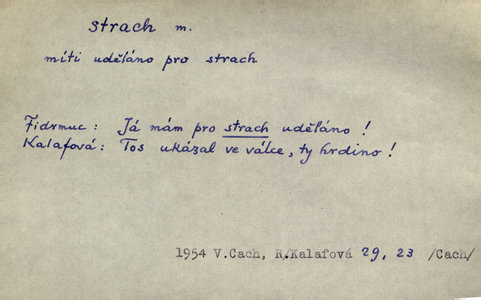 strach m.
míti uděláno pro strach
Fidrmuc: Já mám pro strach uděláno!
Kalafová: Tos ukázal ve válce, ty hrdino!
1954 V.Cach, R/Kalafová 29, 23 /Cach/